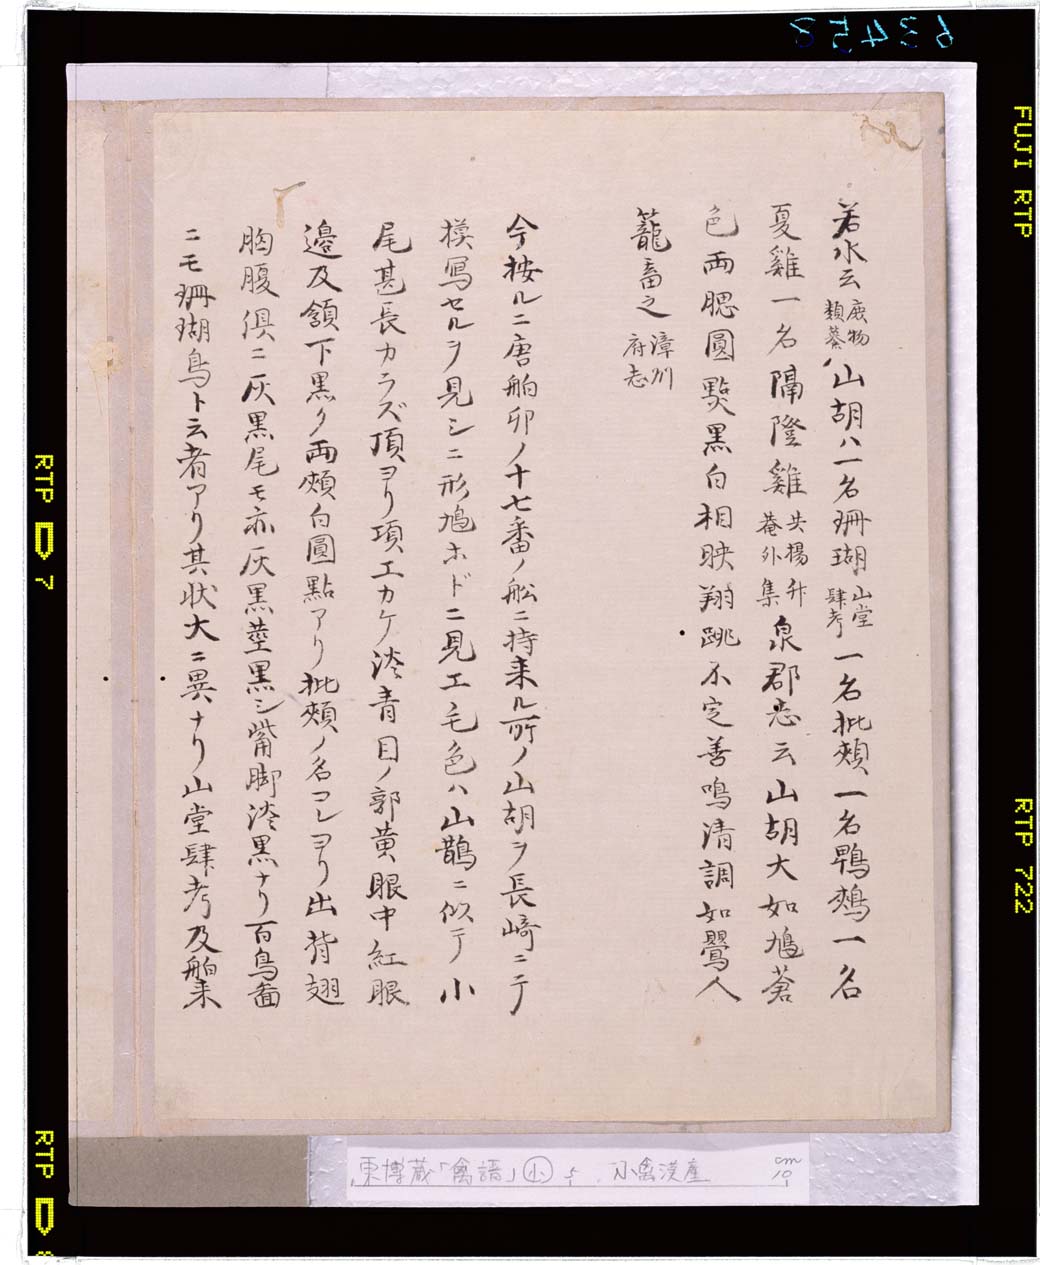 63458
FUJI RTP
RTP 722
RTP
7
RTP
若水云庶物類纂山胡ハ一名珊瑚山堂肆考一名批頰一名鴨鵊一名
夏雞一名隔隥雞共楊升菴外集泉郡志云山胡大如鳩蒼
色両腮圓㸃黒白相映翔跳不定善鳴清調如鸎人
籠畜之漳州府志
今按ルニ唐舶卯ノ十七番ノ舩ニ持来ル所ノ山胡ヲ長崎ニテ
摸寫セルヲ見シニ形鳩ホドニ見エ毛色ハ山鵲ニ似テ小
尾甚長カラズ頂ヨリ項エカケ淡青目ノ郭黄眼中紅眼
邉及頷下黒ク両頰白圓點アリ批頰ノ名コレヨリ出背翅
胸腹倶ニ灰黒尾モ亦灰黒莖黒シ觜脚淡黒ナリ百鳥圖
ニモ珊瑚鳥ト云者アリ其状大ニ異ナリ山堂肆考及舶来
東博蔵「禽譜」小 小禽漢産
cm
10